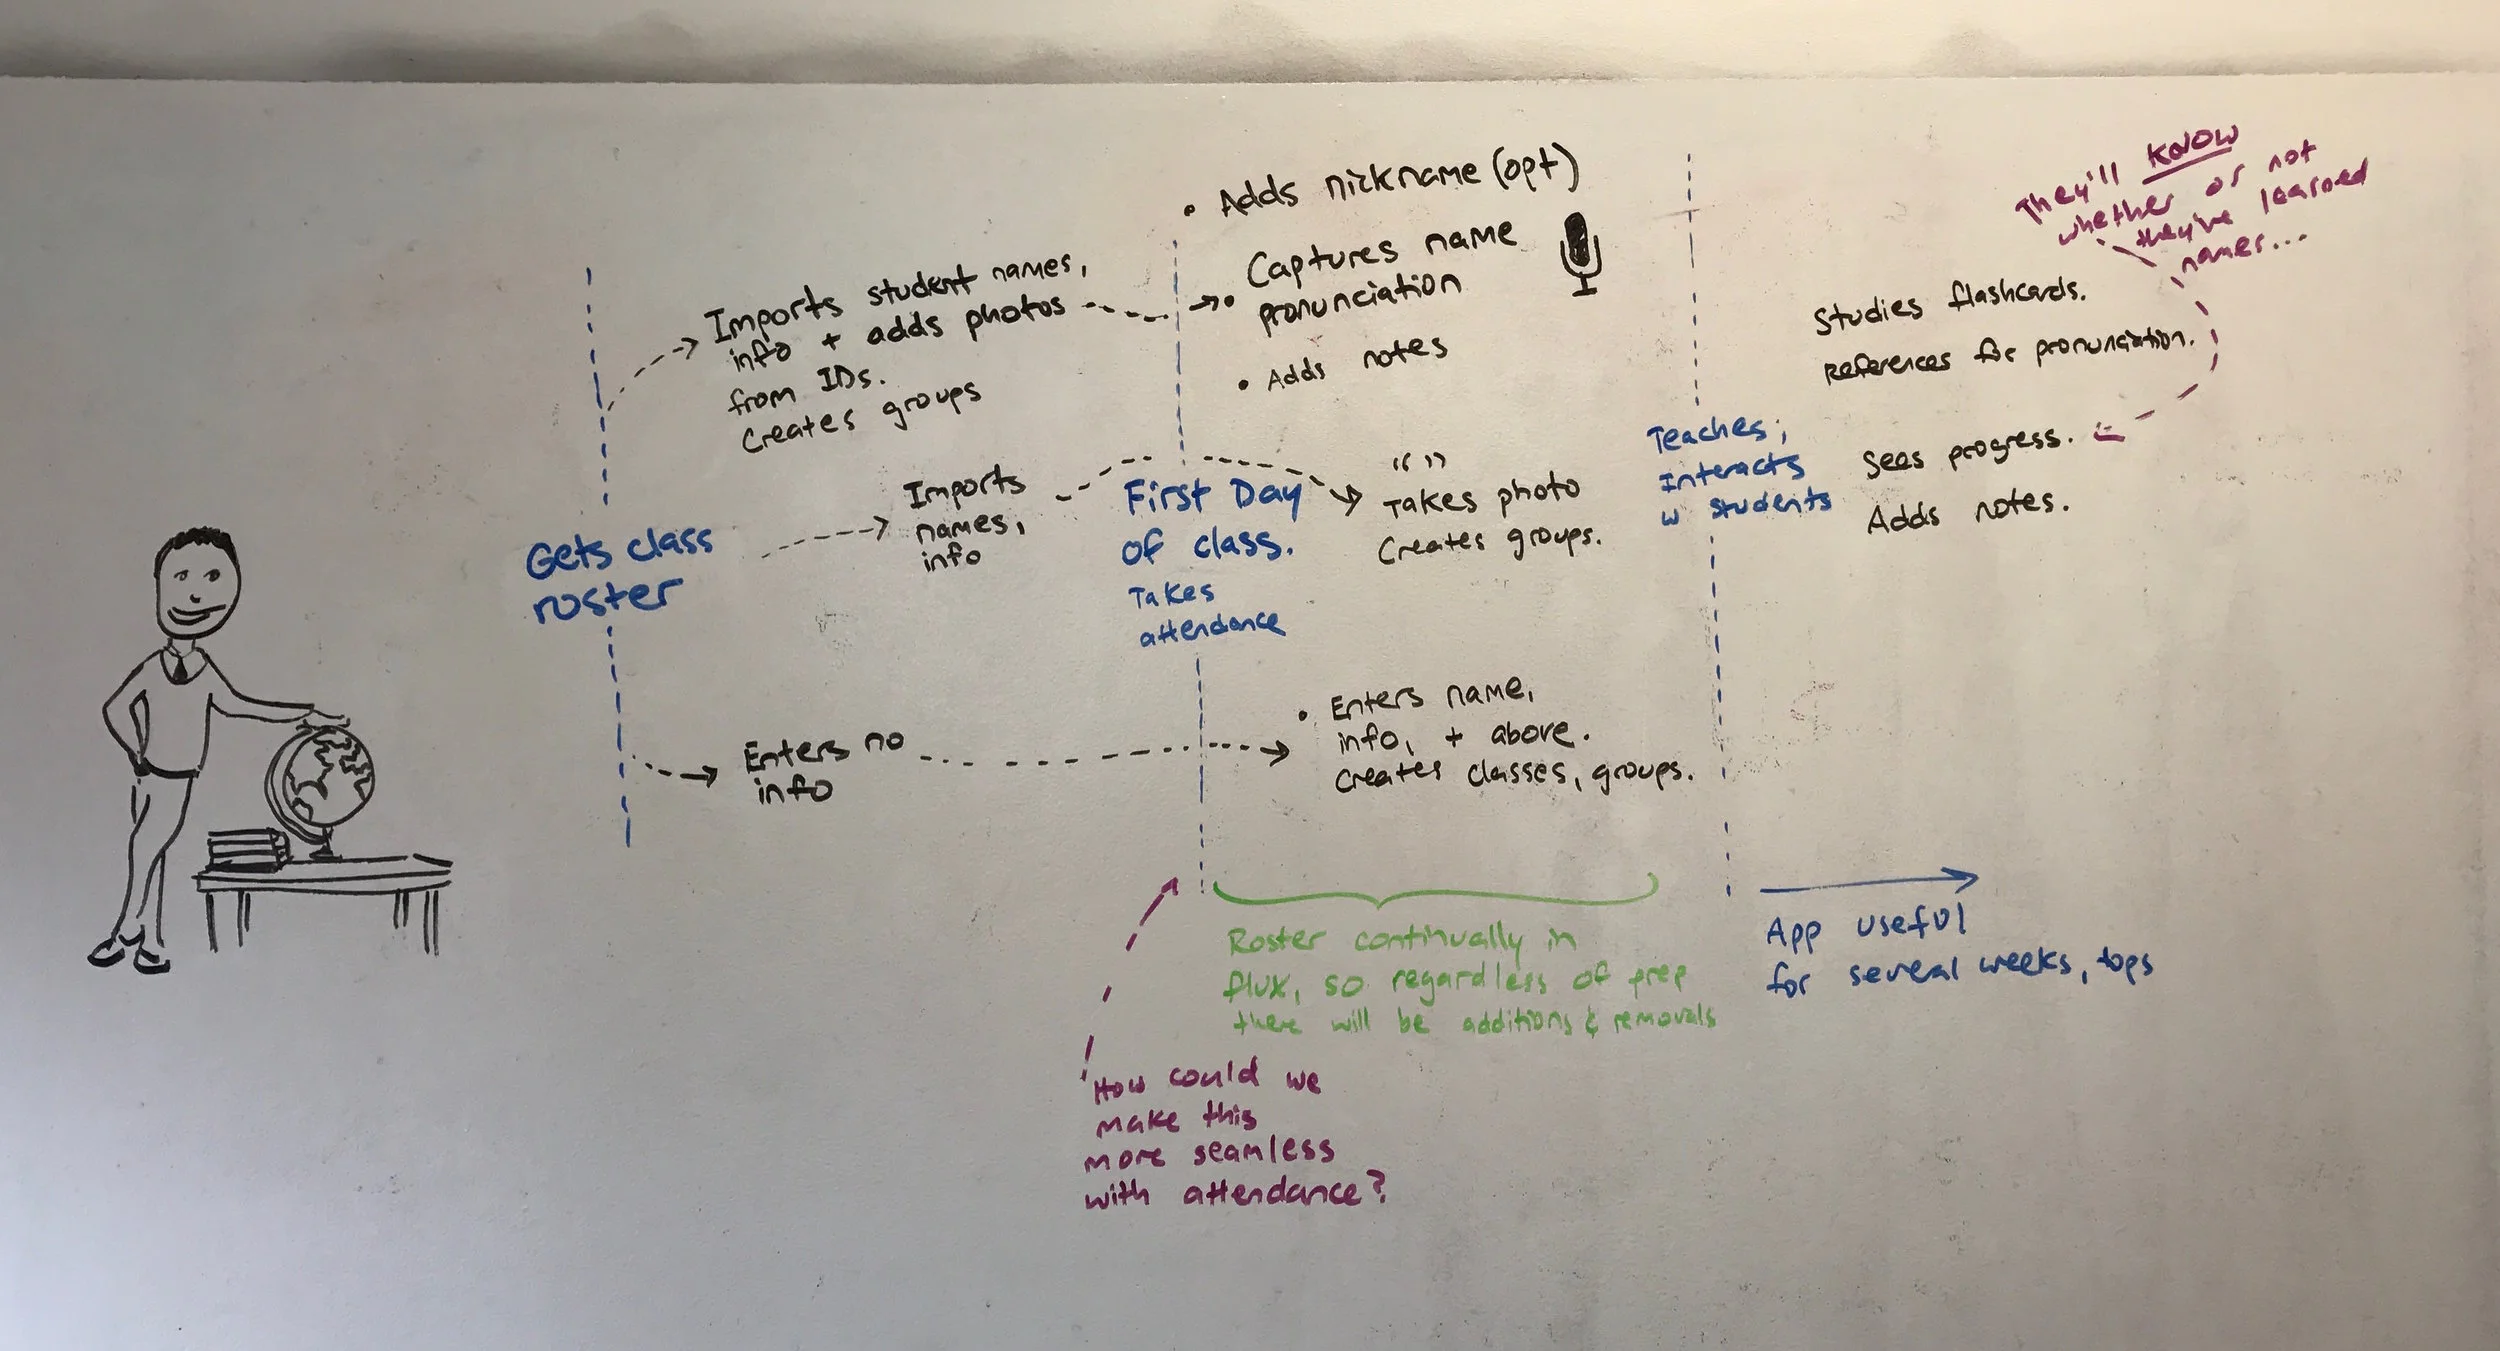 Gets class
roster
Imports student names,
info + adds photos
from IDs.
Creates groups
Imports
names,
info
Enters no
info
First Day
of class.
Takes
attendance
• Adds nickname (opt)
• Captures name
pronunciation
• Adds notes
“ ”
Takes photo
Creates groups.
• Enters name,
info, + above.
Creates classes, groups.
Roster continually in
flux, so regardless of prep
there will be additions & removals
How could we
make this
more seamless
with attendance?
Teaches,
Interacts
w students
Studies flashcards.
References for pronunciation.
Sees progress.
Adds notes.
They'll KNOW
whether or not
they've learned
names...
App useful
for several weeks, tops